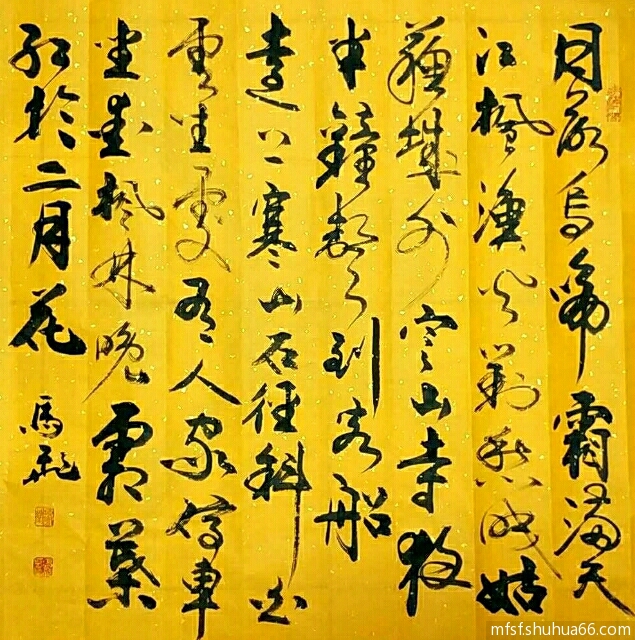 月落烏啼霜滿天
江楓漁火對愁眠姑
蘇城外寒山寺夜
半鐘聲到客船
遠上寒山石徑斜白
雲生處有人家停車
坐愛楓林晚霜葉
紅於二月花
馬
mfsf.shuhua66.com